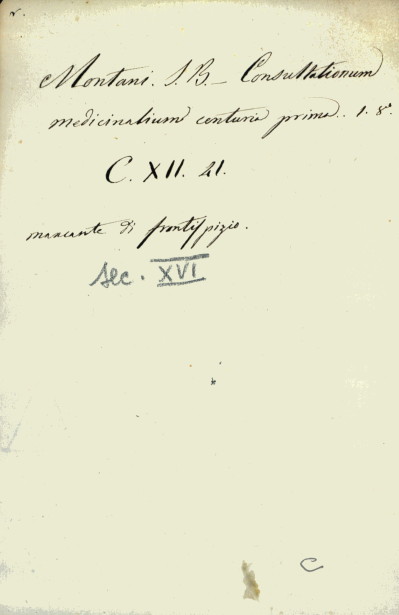 Montani. J. B. – Consultationum
medicinalium centuria prima. 1. 8.°
C. XII. 21.
mancante di frontispizio.
sec. XVI
C